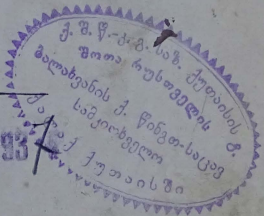 ქ. შ. წ.-კ. გ. საზ. ქუთაისის გ.
შოთა რუსთველის
ბალახვანის ქ. წიგნთ-საცავ
სამკითხველო
ქ. ქუთაისში
937